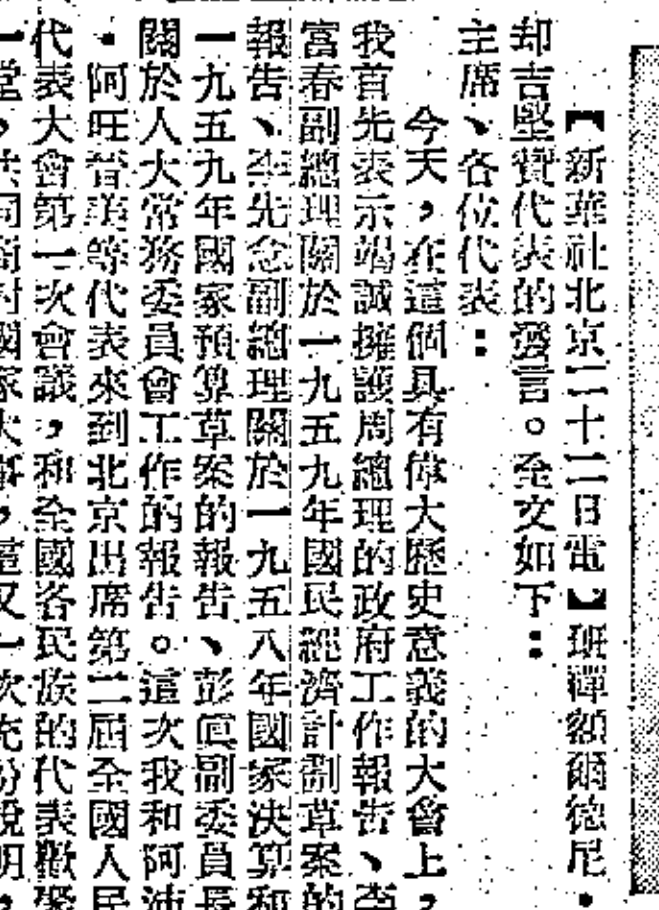 【新華社北京二十二日電】班禪額爾德尼·
却吉堅贊代表的發言。全文如下：
主席、各位代表：
今天，在這個具有偉大歷史意義的大會上，
我首先表示竭誠擁護周總理的政府工作報告、李
富春副總理關於一九五九年國民經濟計劃草案的
報告、李先念副總理關於一九五八年國家決算和
一九五九年國家預算草案的報告、彭眞副委員長
關於人大常務委員會工作的報告。這次我和阿沛
·阿旺晉美等代表來到北京出席第二屆全國人民
代表大會第一次會議，和全國各民族的代表歡聚
一堂，共同商討國家大事，這又一次充份說明，